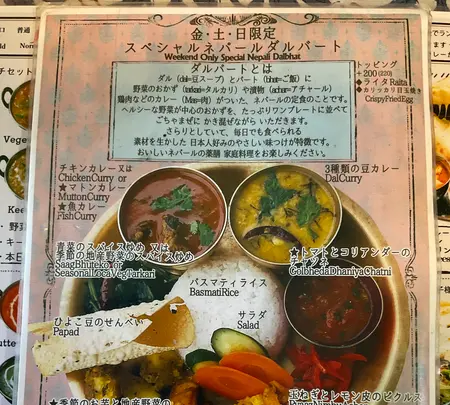 金・土・日限定
スペシャルネパールダルバート
Weekend Only Special Nepali Dalbhat
ダルバートとは
ダル(dal=豆スープ)とバート(bhat=ご飯)に
野菜のおかず(tarkari=タルカリ)や漬物(achar=アチャール)
鶏肉などのカレー(Mas=肉)がついた、ネパールの定食のことです。
ヘルシーな野菜が中心のおかずを、たっぷりワンプレートに並べて
ごちゃまぜに かき混ぜながら いただきます。
さらりとしていて、毎日でも食べられる
素材を生かした 日本人好みのやさしい味つけが特徴です。
おいしいネパールの薬膳 家庭料理をお楽しみください。
トッピング
+200(220)
★ライタRaita
◆カリッカリ目玉焼き
CrispyFriedEgg
チキンカレー又は
ChickenCurry or
★マトンカレー
MuttonCurry
★魚カレー
FishCurry
3種類の豆カレー
DalCurry
青菜のスパイス炒め 又は
季節の地産野菜のスパイス炒め
SaagBhuteko or
SeasonalLocaVegTarkari
★トマトとコリアンダーの
チャツネ
GolbhedaDhaniyaChatni
バスマティライス
BasmatiRice
ひよこ豆のせんべい
Papad
サラダ
Salad
★季節のお芋と地産野菜の
玉ねぎとレモン皮のピクルス
チセット
Vege